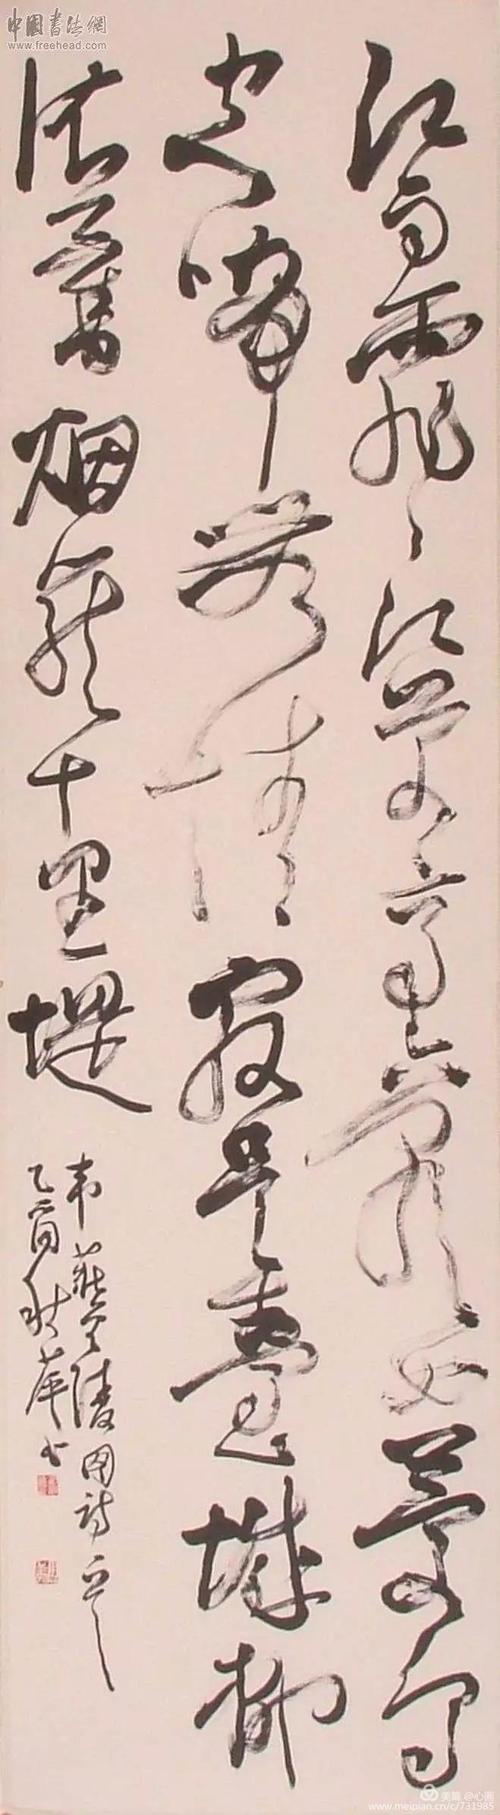 中國書法網
www.freehead.com
江雨霏霏江草齊六朝如夢鳥
空啼無情最是臺城柳
依舊烟籠十里堤
韋莊金陵圖詩
乙酉秋萍书
美篇
www.meipian.cn/c/731985